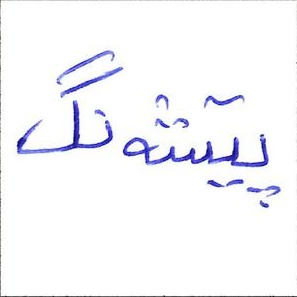 پێشەنگ